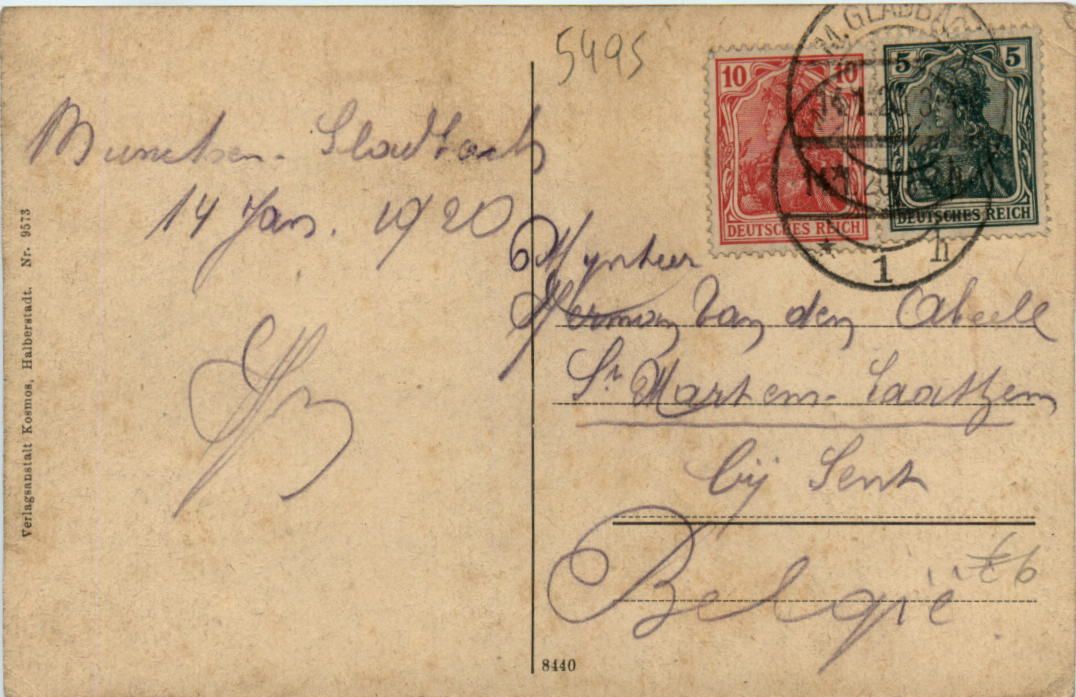 5495
M. GLADBACH
1
h
10 10
DEUTSCHES REICH
5 5
DEUTSCHES REICH
Munchen-Gladbach
14 Jan. 1920
Mynheer
Herman Van den Abeele
St Martens-Laathem
bij Gent
België
Verlagsanstalt Kosmos, Halberstadt. Nr. 9573
8440